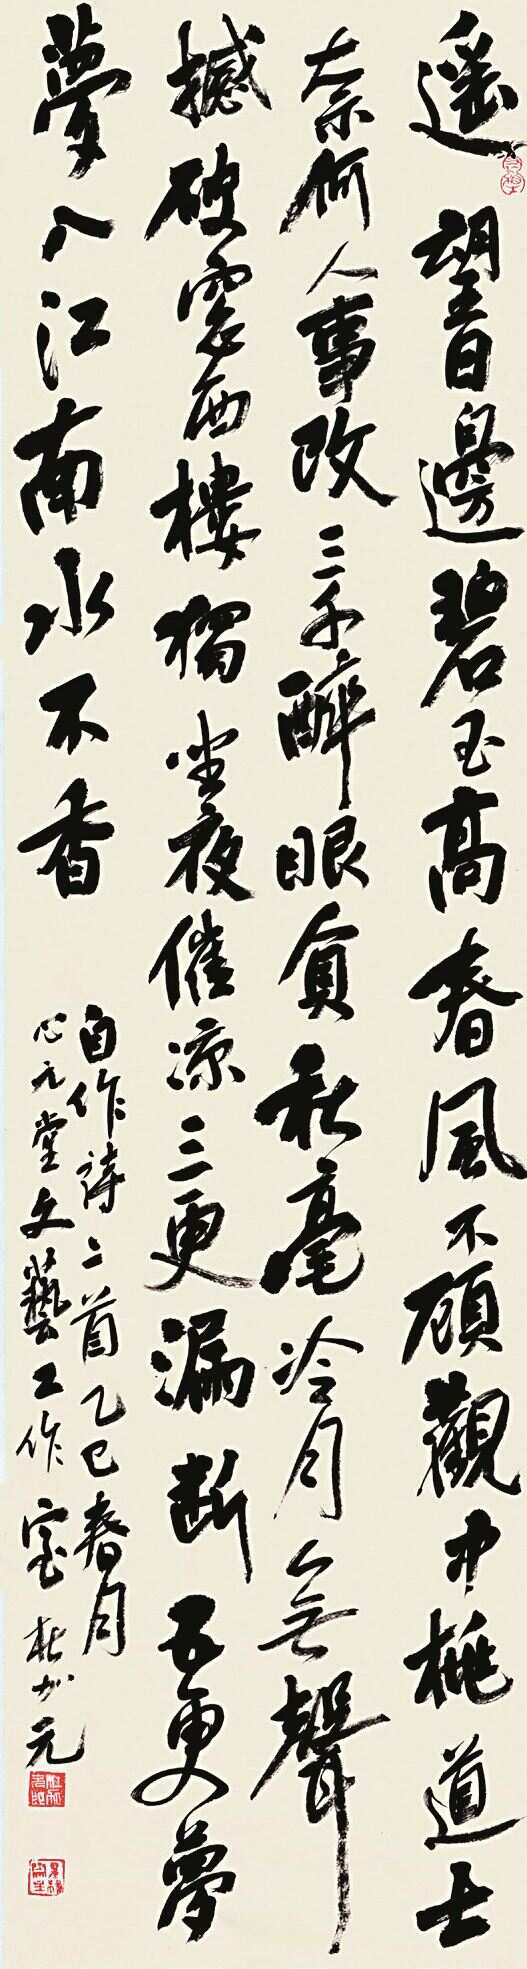 遥望昔邊碧玉高春風不顧觀中桃道士
奈何人事改三千醉眼負秋毫冷月無聲
撼破窗西樓獨坐夜催凉三更漏断五更夢
夢入江南水不香
自作詩二首乙巳春月
心元堂文藝工作室杜少元